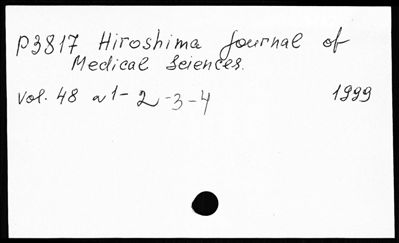 P3817 Hiroshima Journal of
Medical Sciences.
vol. 48 N1-2-3-4 1999